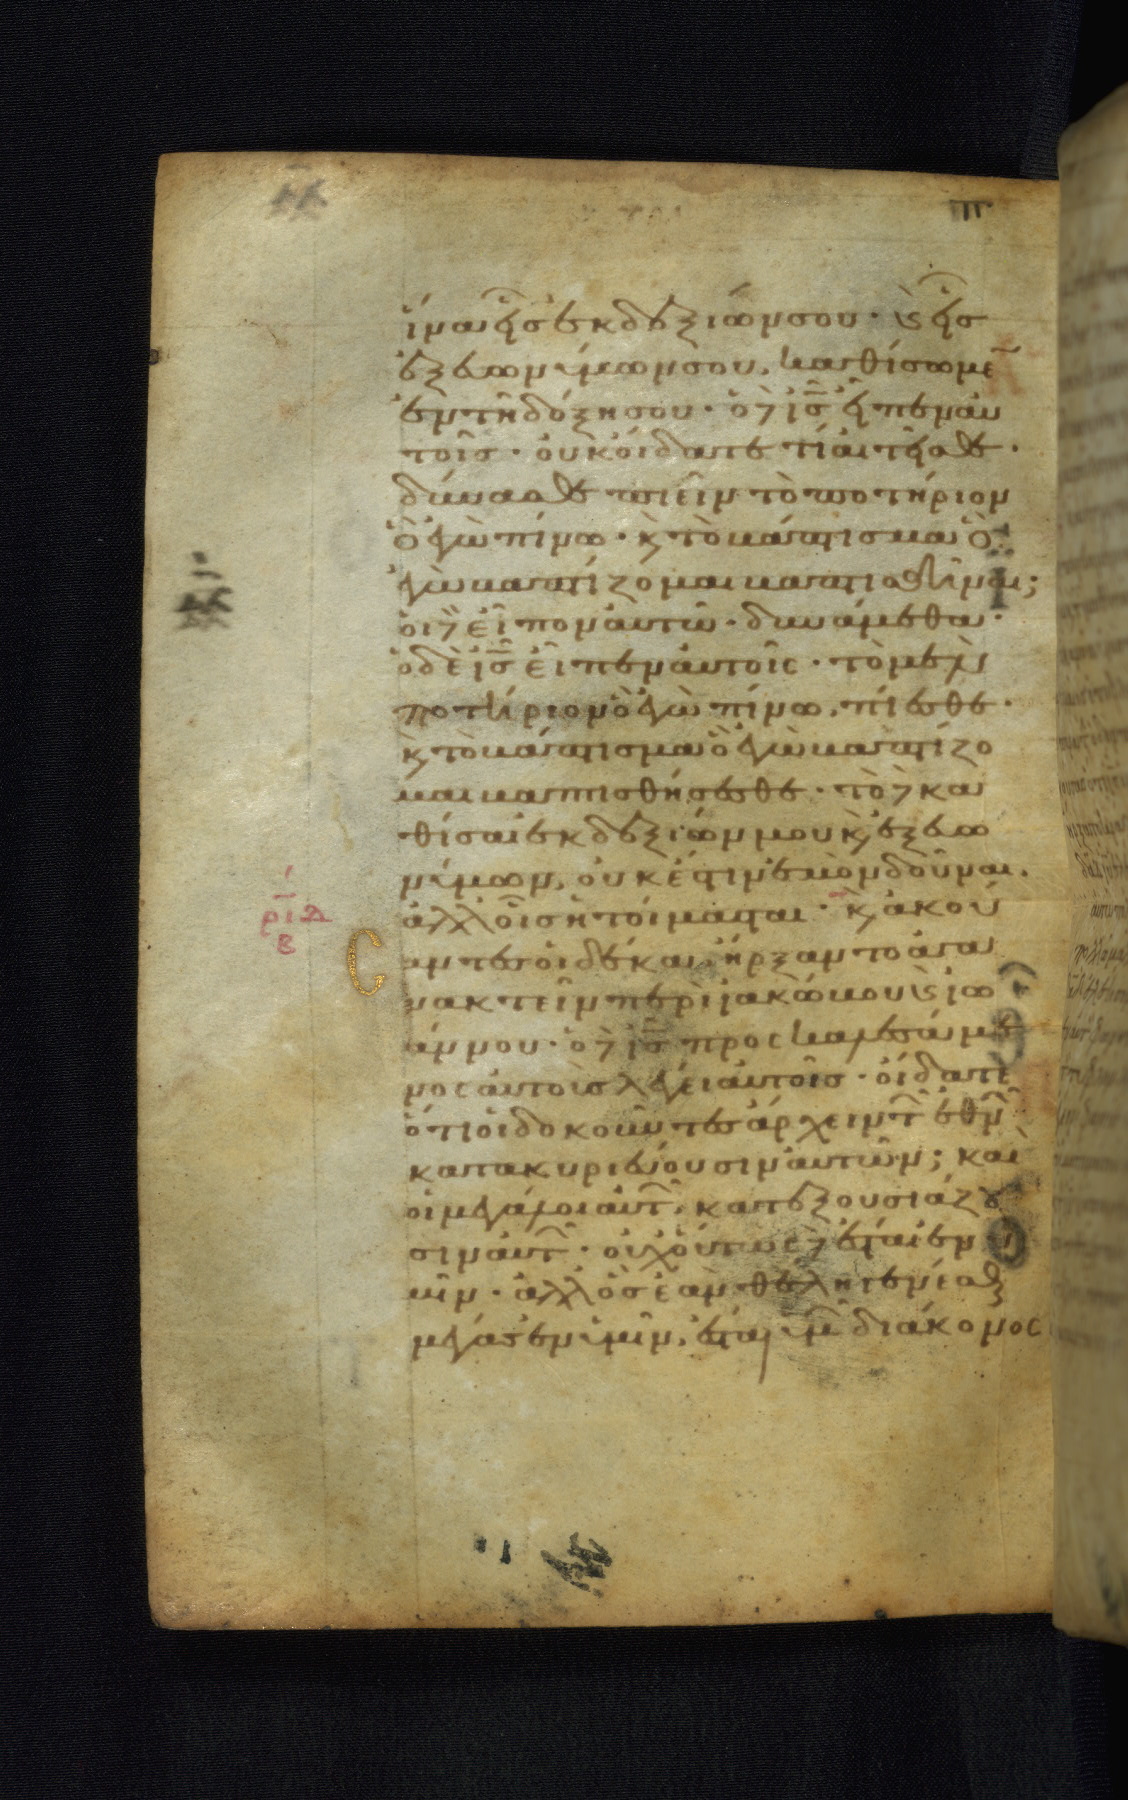 ἵνα εἷς ἐκ δεξιῶν σου· καὶ εἷς
ἐξ εὐωνύμων σου, καθίσωμεν
ἐν τῇ δόξῃ σου· ὁ δὲ ις εἶπεν αὐ
τοῖς· οὐκ οἴδατε τί αἰτεῖσθε·
δύνασθε πιεῖν τὸ ποτήριον
ὃ ἐγὼ πίνω· κ τὸ βάπτισμα ὃ
ἐγὼ βαπτίζομαι βαπτισθῆναι;
οἱ δὲ εἶπον αὐτῶ· δυνάμεθα·
ὁ δὲ ις εἶπεν αὐτοῖς· τὸ μὲν
ποτήριον ὃ ἐγὼ πίνω, πίεσθε·
κ τὸ βάπτισμα ὃ ἐγὼ βαπτίζο
μαι βαπτισθήσεσθε· τὸ δὲ κα
θίσαι ἐκ δεξιῶν μου κ ἐξ εὐω
νύμων, οὐκ ἔστιν ἐμὸν δοῦναι.
ἀλλ οἷς ἡτοίμασται· κ ἀκού
σαντες οἱ δέκα, ἤρξαντο ἀγα
νακτεῖν περὶ ἰακώβου καὶ ἰω
άννου· ὁ δὲ ις προσκαλεσάμε
νος αὐτοὺς λέγει αὐτοῖς· οἴδατε
ὅτι οἱ δοκοῦντες ἄρχειν τῶν ἐθνῶν
κατακυριεύουσιν αὐτῶν; καὶ
οἱ μεγάλοι αὐτῶν, κατεξουσιάζου
σιν αὐτῶν· οὐχ οὕτως δὲ ἔσται ἐν ὑ
μῖν· ἀλλ ὃς ἐὰν θέλῃ γενέσθαι
μέγας ἐν ὑμῖν, ἔσται ὑμῶν διάκονος
ριδ
β